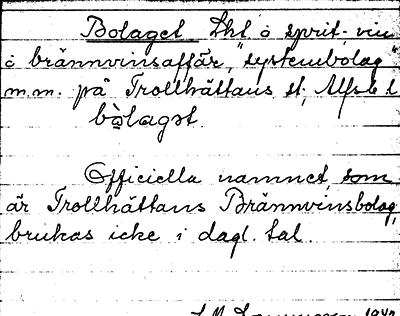 Bolaget Lht o sprit- vin
o brännvinsaffär, "systembolag"
m.m. på Trollhättans st;
bolagət.
Officiella namnet, som
är Trollhättans Brännvinsbolag,
brukas icke i dagl. tal.